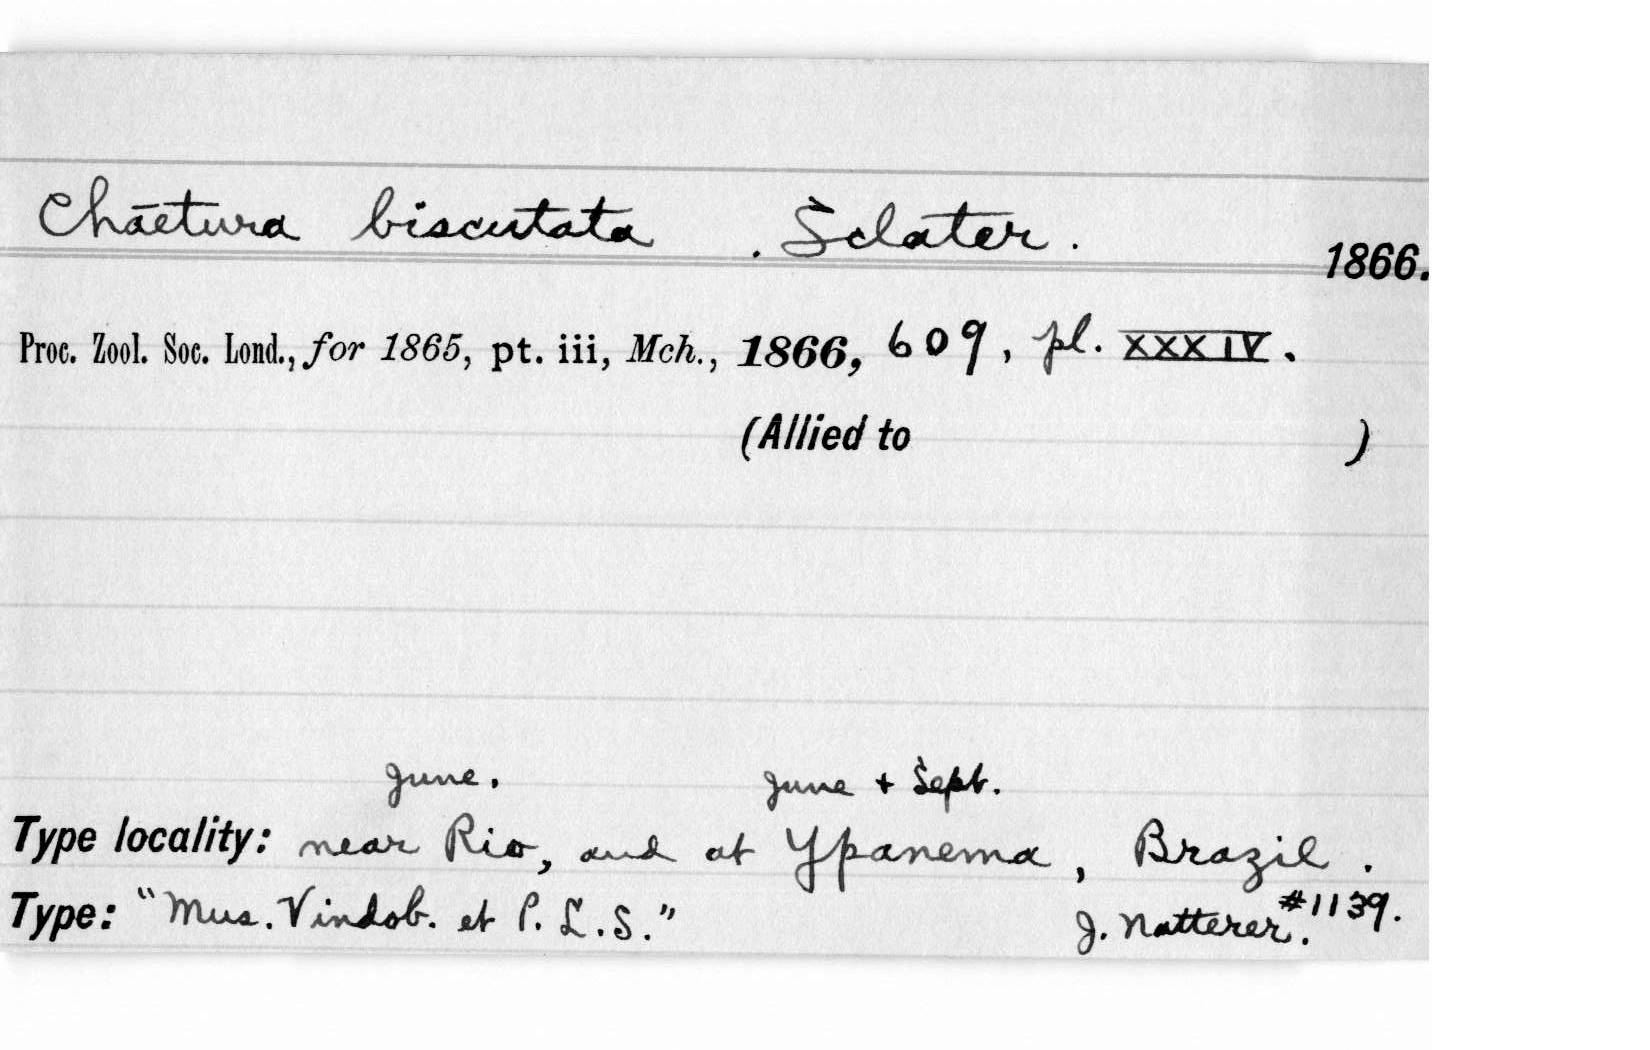 Chaetura biscutata . Sclater. 1866.
Proc. Zool. Soc. Lond., for 1865, pt. iii, Mch., 1866, 609, pl. XXXIV.
(Allied to )
June. June + Sept.
Type locality: near Rio, and at Ypanema, Brazil.
Type: "Mus. Vindob. et P. L. S." J. Natterer. #1139.